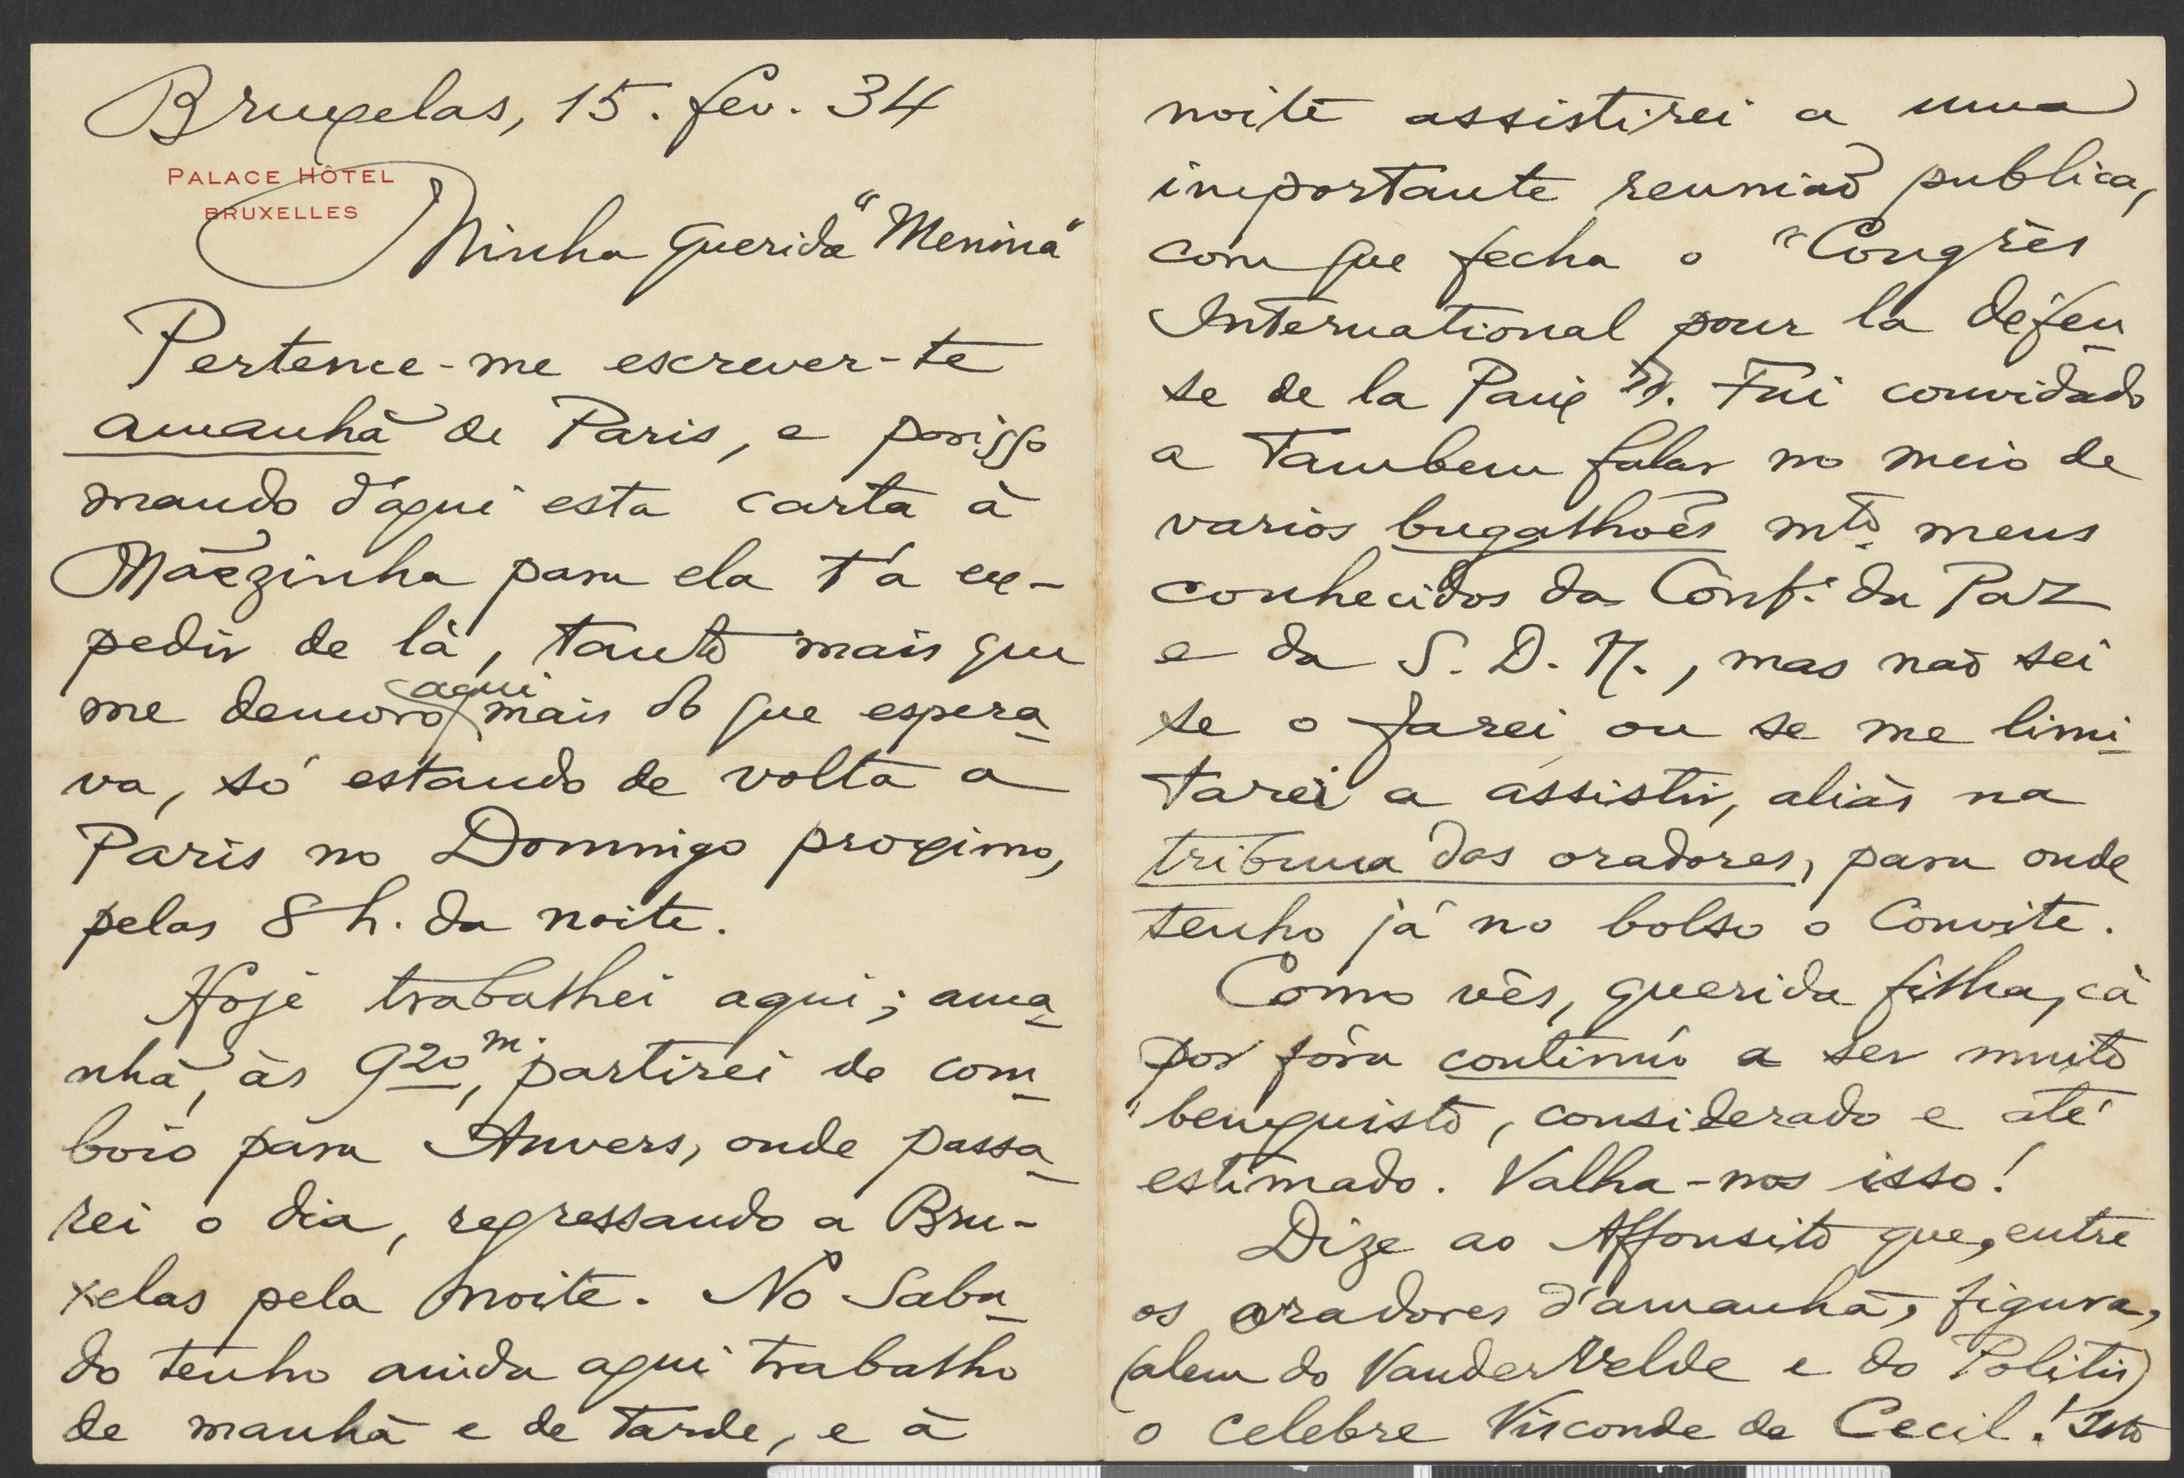 Bruxelas, 15. fev. 34
PALACE HÔTEL
BRUXELLES
Minha querida "Menina"
Pertence-me escrever-te
amanhã de Paris, e porisso
mando d'aqui esta carta à
Mãezinha para ela t'a ex-
pedir de lá, tanto mais que
me demoro aqui mais do que espera-
va, só estando de volta a
Paris no Domingo proximo,
pelas 8 h. da noite.
Hoje trabalhei aqui; ama-
nhã, às 9 20 m., partirei de com-
boio para Anvers, onde passa-
rei o dia, regressando a Bru-
xelas pela noite. No Saba-
do tenho ainda aqui trabalho
de manhã e de tarde, e à
noite assistirei a uma
importante reunião publica,
com que fecha o "Congrès
International pour la défen-
se de la Paix". Fui convidado
a tambem falar no meio de
varios bugalhões mto. meus
conhecidos da Conf. da Paz
e da S. D. N., mas não sei
se o farei ou se me limi-
tarei a assistir, aliàs na
tribuna dos oradores, para onde
tenho já no bolso o convite.
Como vês, querida filha, cá
por fóra continúo a ser muito
bemquisto, considerado e até
estimado. Valha-nos isso!
Dize ao Affonsito que, entre
os oradores d'amanhã, figura,
(alem do VanderVelde e do Politis)
o celebre Visconde de Cecil! Isto